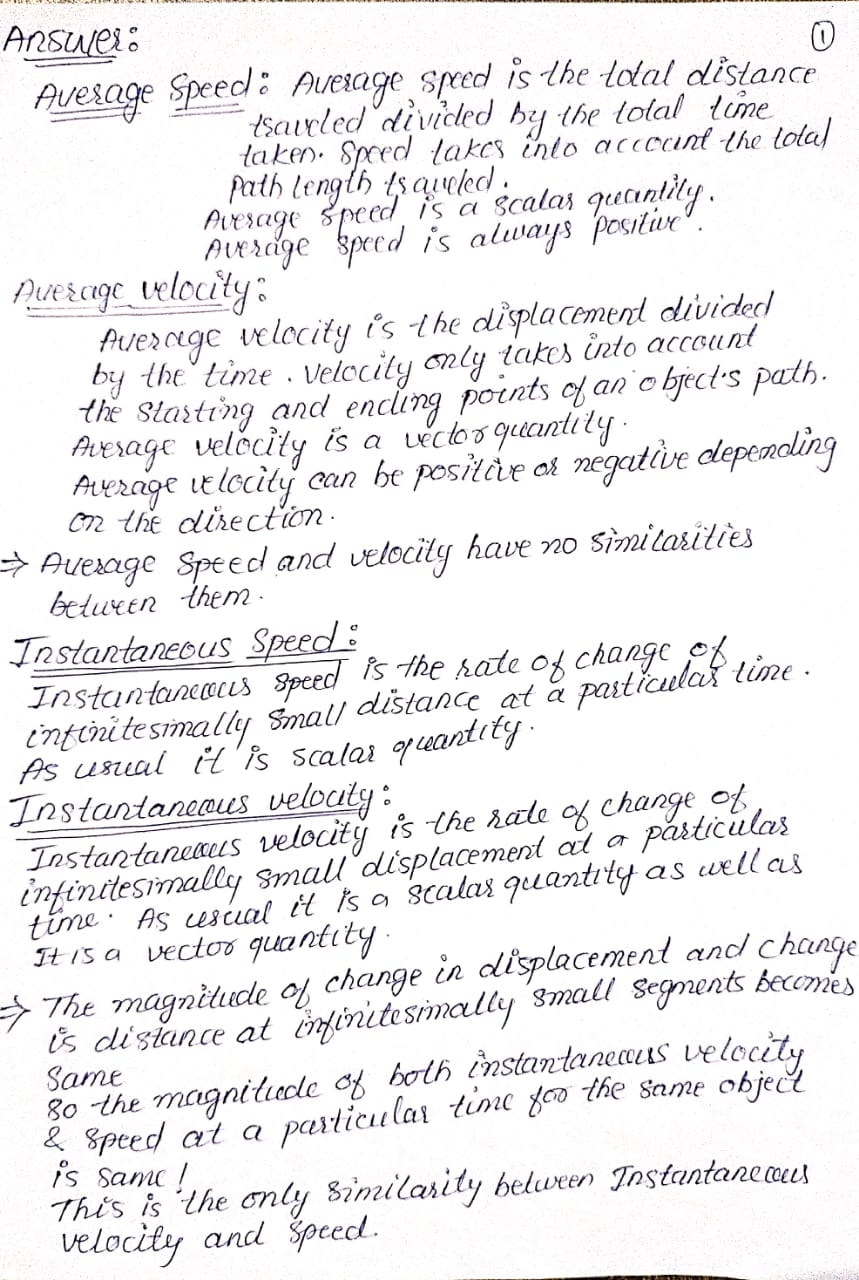 Answer:
①
Average Speed: Average speed is the total distance
traveled divided by the total time
taken. Speed takes into account the total
path length traveled.
Average speed is a scalar quantity.
Average speed is always positive.
Average velocity:
Average velocity is the displacement divided
by the time. velocity only takes into account
the starting and ending points of an object's path.
Average velocity is a vector quantity.
Average velocity can be positive or negative depending
on the direction.
⇒ Average Speed and velocity have no similarities
between them.
Instantaneous Speed:
Instantaneous speed is the rate of change of
infinitesimally small distance at a particular time.
As usual it is scalar quantity.
Instantaneous velocity:
Instantaneous velocity is the rate of change of
infinitesimally small displacement at a particular
time. As usual it is a scalar quantity as well as
It is a vector quantity.
⇒ The magnitude of change in displacement and change
is distance at infinitesimally small segments becomes
same
so the magnitude of both instantaneous velocity
& speed at a particular time for the same object
is same!
This is the only similarity between Instantaneous
velocity and speed.